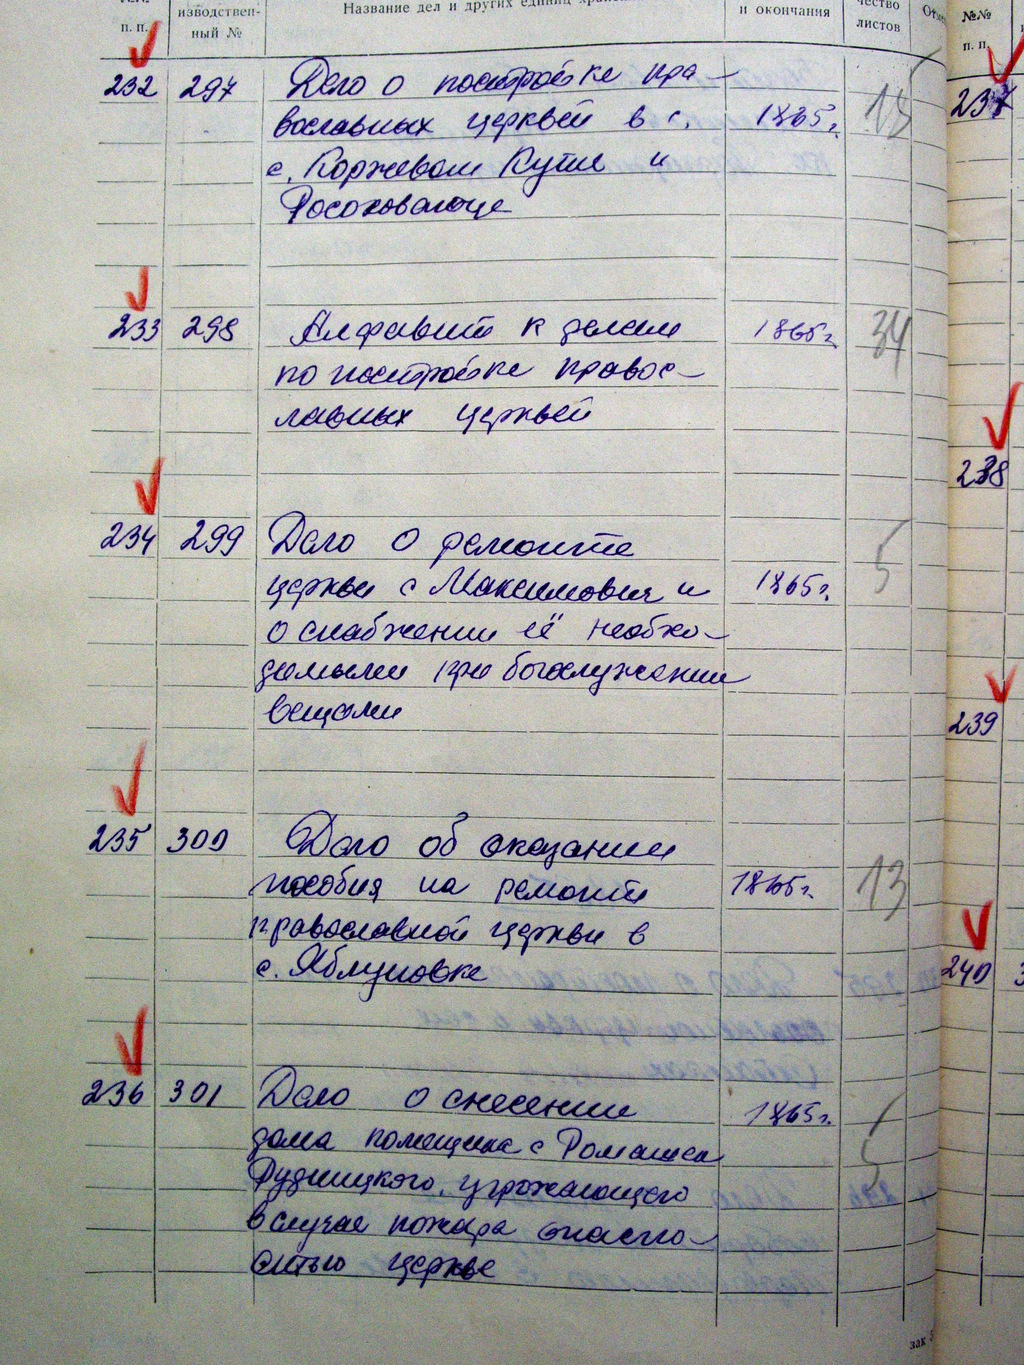 п. п.
изводствен-
ный №
Название дел и других единиц
и окончания
чество
листов
№№
п. п.
232 297 Дело о постройке пра-
вославных церквей в с. 1865 г. 15
с. Коржевом Куте и
Росоховатце
233 298 Алфавит к делам 1865 г. 34
по постройке правос-
лавных церквей
234 299 Дело о ремонте 5
церкви с Максимович и 1865 г.
о снабжении её необхо-
димыми при богослужении
вещами
235 300 Дело об оказании
пособия на ремонт 1865 г. 13
православной церкви в
с. Яблуновке
236 301 Дело о снесении 1865 г. 5
дома помещика с Ромашки
Рудницкого, угрожающего
в случае пожара опасно-
стью церкви
зак
237
238
239
240